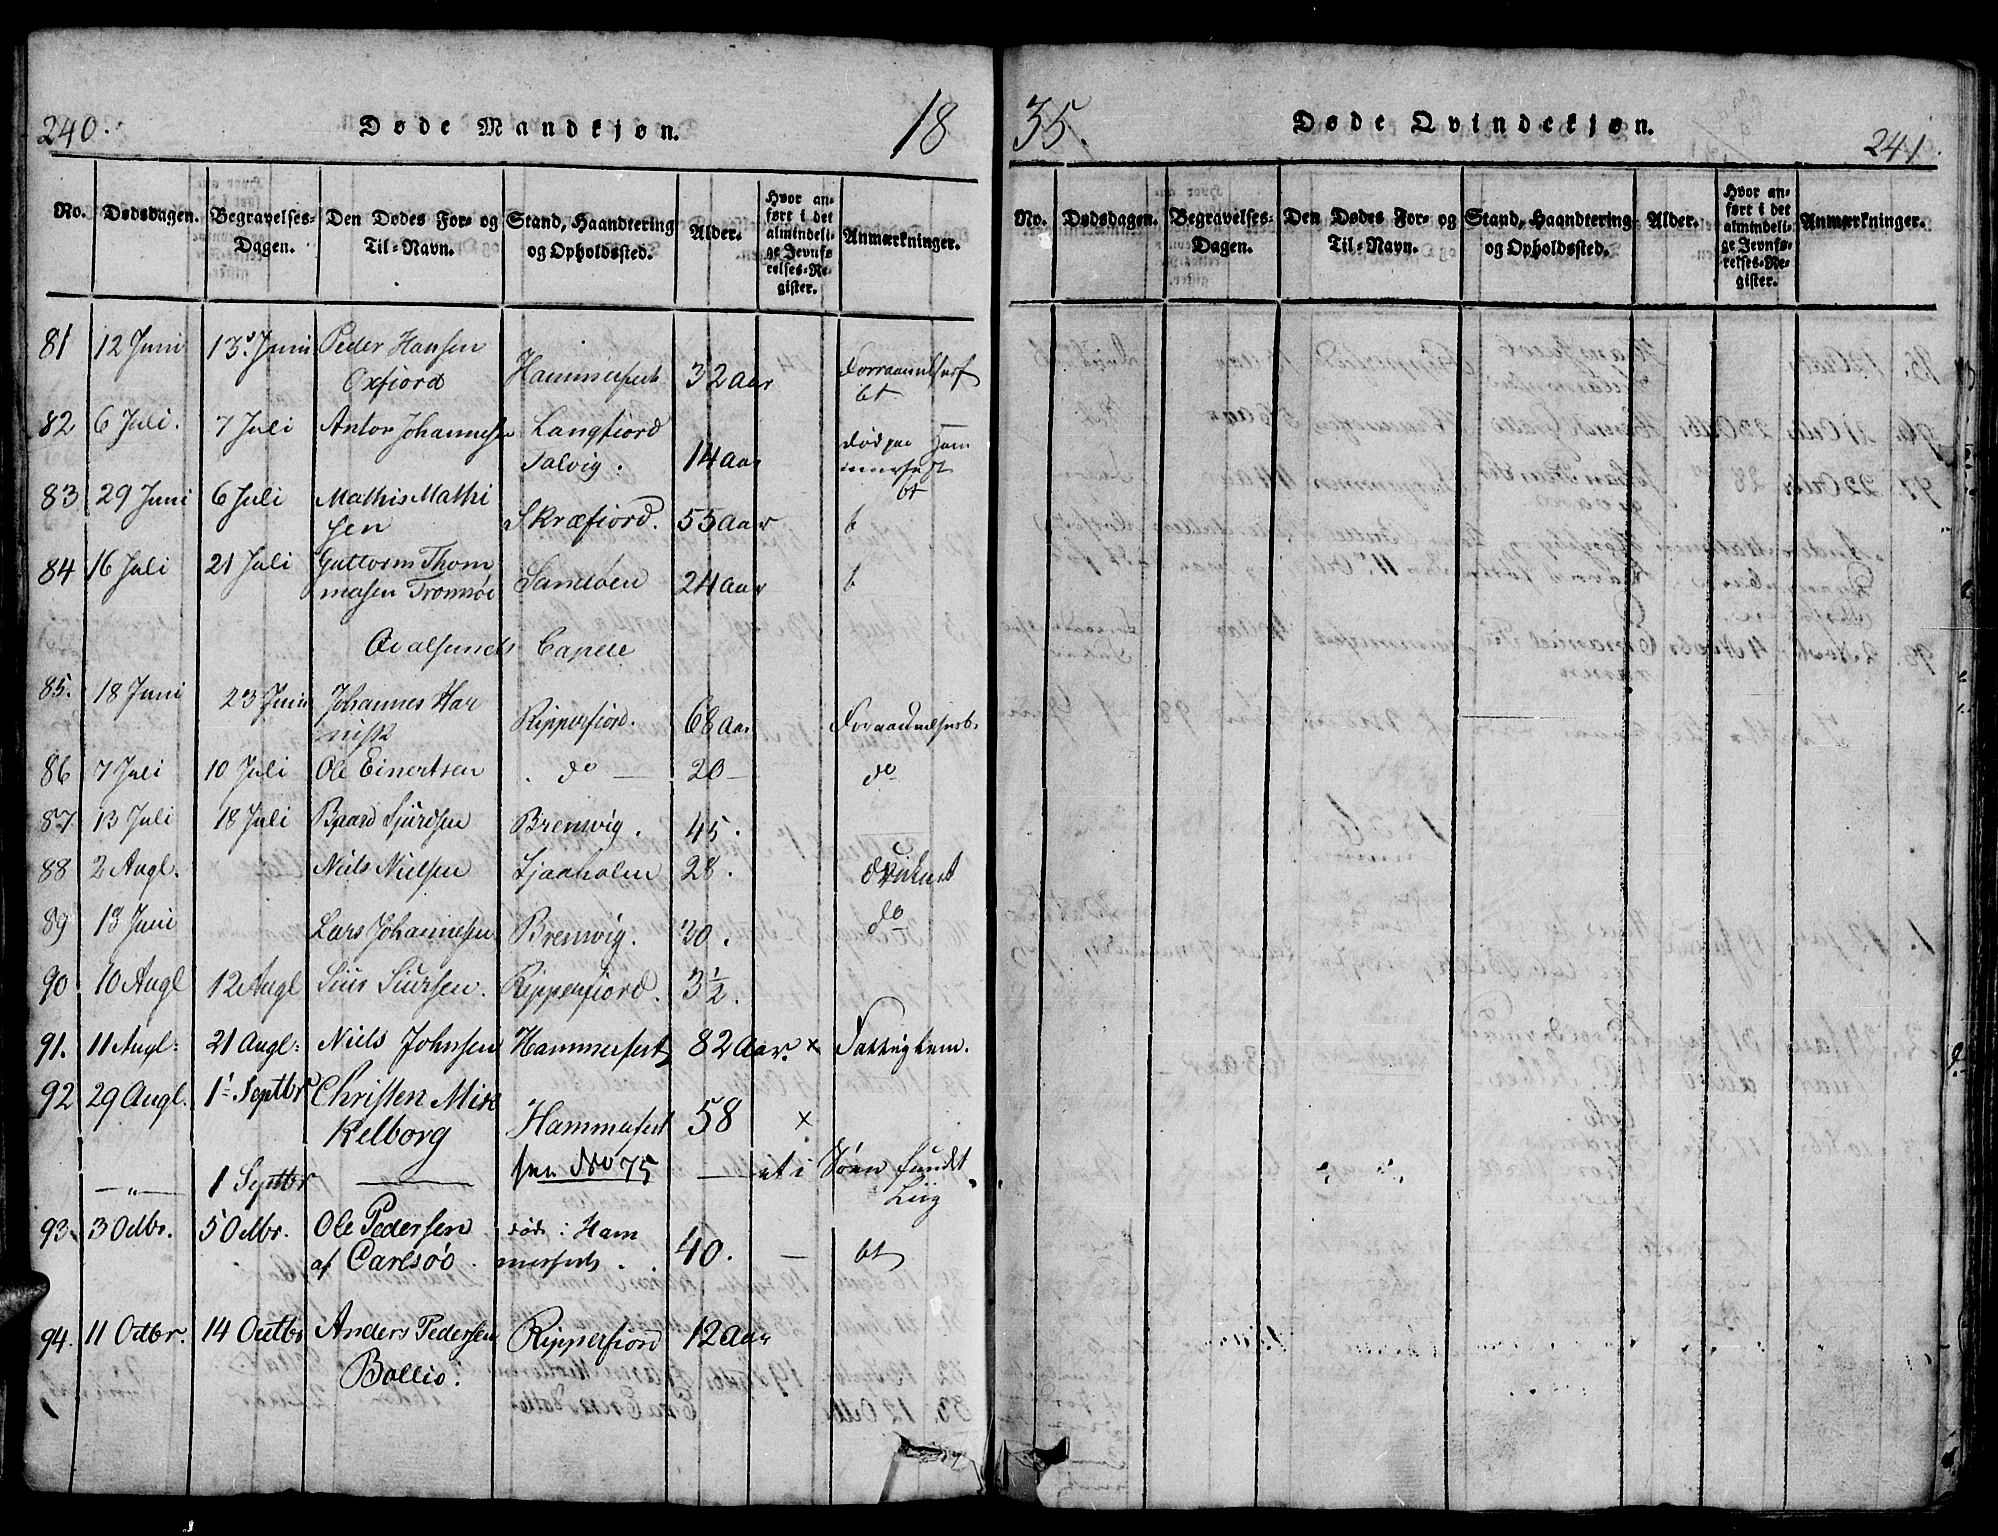 240. Døde Mandkjøn. 18
No. Dødsdagen. Begravelses-Dagen. Den Dødes For- og Til-Navn. Stand, Haandtering og Opholdssted. Alder. Hvor anført i det almindelige Jevnførelses-Register. Anmærkninger.
81 12 Juni 13 Juni Peder Hansen
Oxfiord Hammerfest 32 aar
bt
82 6 Juli. 7 Juli Anton Johannesen Langfiord
Talvig. 14 aar død paa Ham
merfest
bt
83 29 Juni 6 Juli Mathis Mathi
sen Skræfiord. 55 aar b
84 16 Juli 21 Juli Guttorm Thom
masen Tromsøe Sandøen 24 aar b
Qvalsunds Capele
85. 18 Juni 23 Juni Johannes Har
Ripperfiord. 68 aar
86 7 Juli 10 Juli Ole Einertsen do — 20 — do
87 13 Juli 18 Juli Baard Sjurdsen Brenvig. 45.
88 2 Augl. Niels Nielsen 28. Druknet
89 13 Juni Lars Johannesen Brenvig. 30. do
90 10 Augl 12 Augl Siursen. Ripperfiord. 3 1/2.
91. 11 Augl: 21 Augl: Niels Johnsen Hammerfest 82 Aar. × Fattiglem.
92 29 Augl. 1 Septbr Christen Mik
kelborg Hammerfest 58 ×
— „ — 1 Septbr — No 75 — et i Søen fundet
Liig
93. 3 Octbr. 5 Octbr. Ole Pedersen
af Carlsöe død i Ham
merfest. 40. — bt
94. 11 Octbr. 14 Octbr Anders Pedersen
Bollio. Ripperfiord 12 Aar
35. Døde Qvindekjøn. 241.
No. Dødsdagen. Begravelses-Dagen. Den Dødes For- og Til-Navn. Stand, Haandtering og Opholdssted. Alder. Hvor anført i det almindelige Jevnførelses-Register. Anmærkninger.